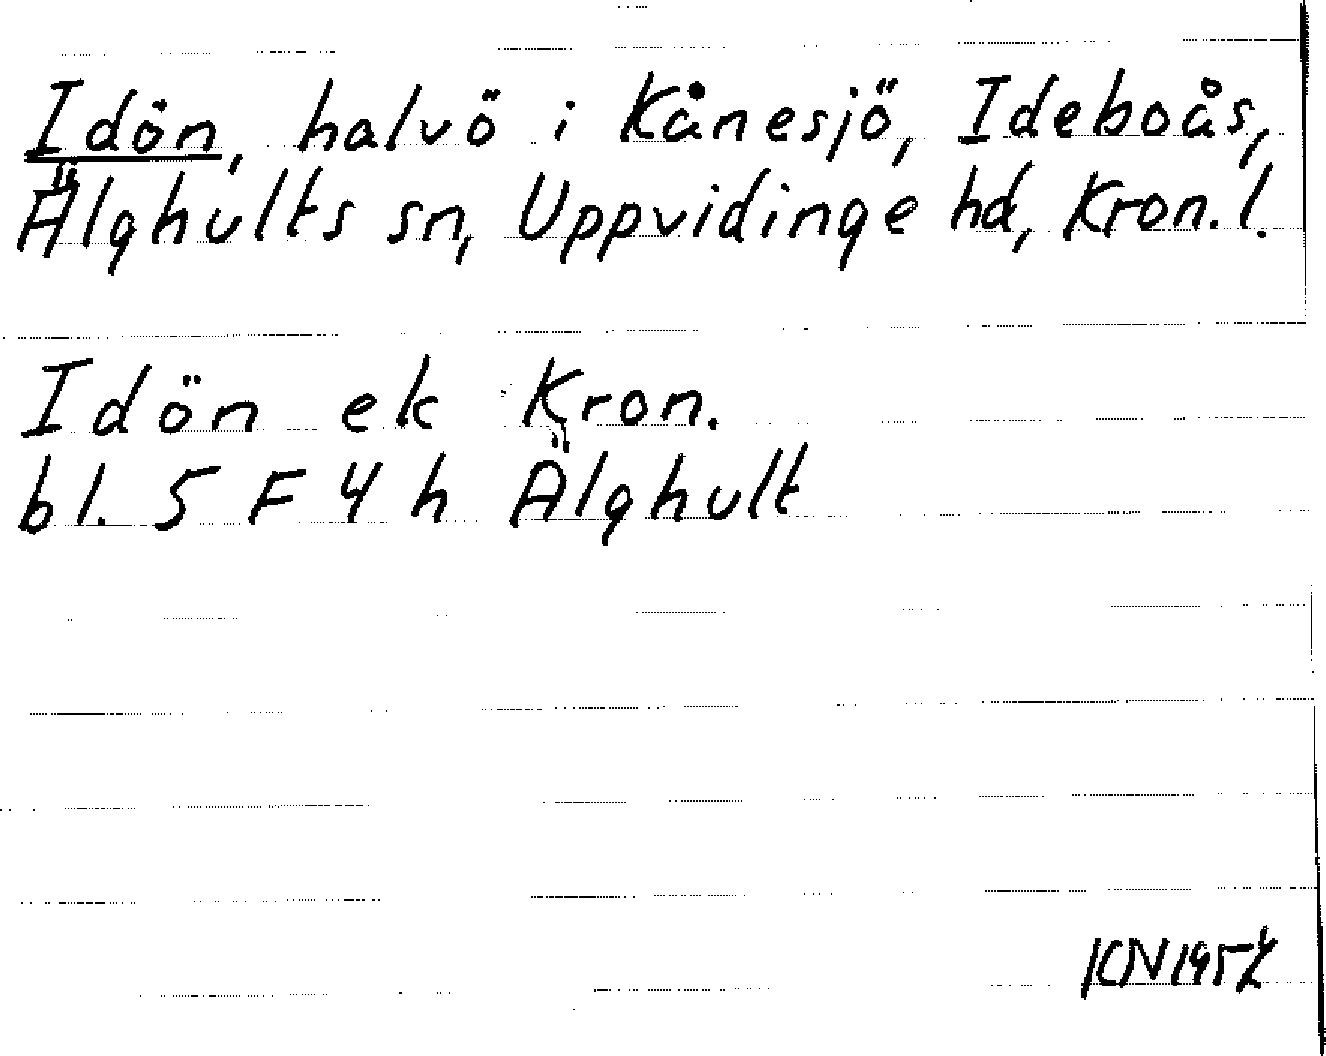 Idön, halvö i Kånesjö, Ideboås,
Älghults sn, Uppvidinge hd, Kron. l.
Idön ek Kron.
bl. 5 F 4 h Älghult